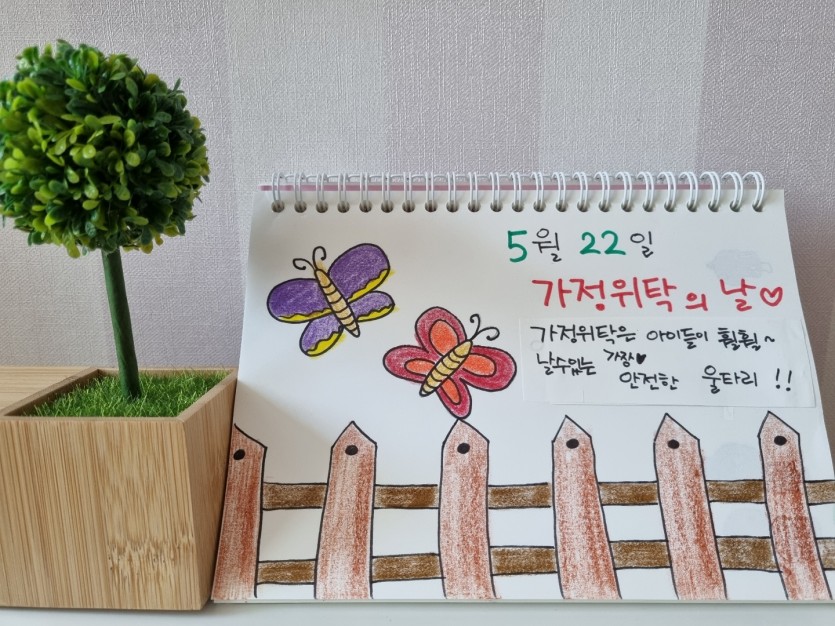 5월 22일
가정위탁의 날♡
가정위탁은 아이들이 훨훨~
날수있는 가장♥
안전한 울타리 !!